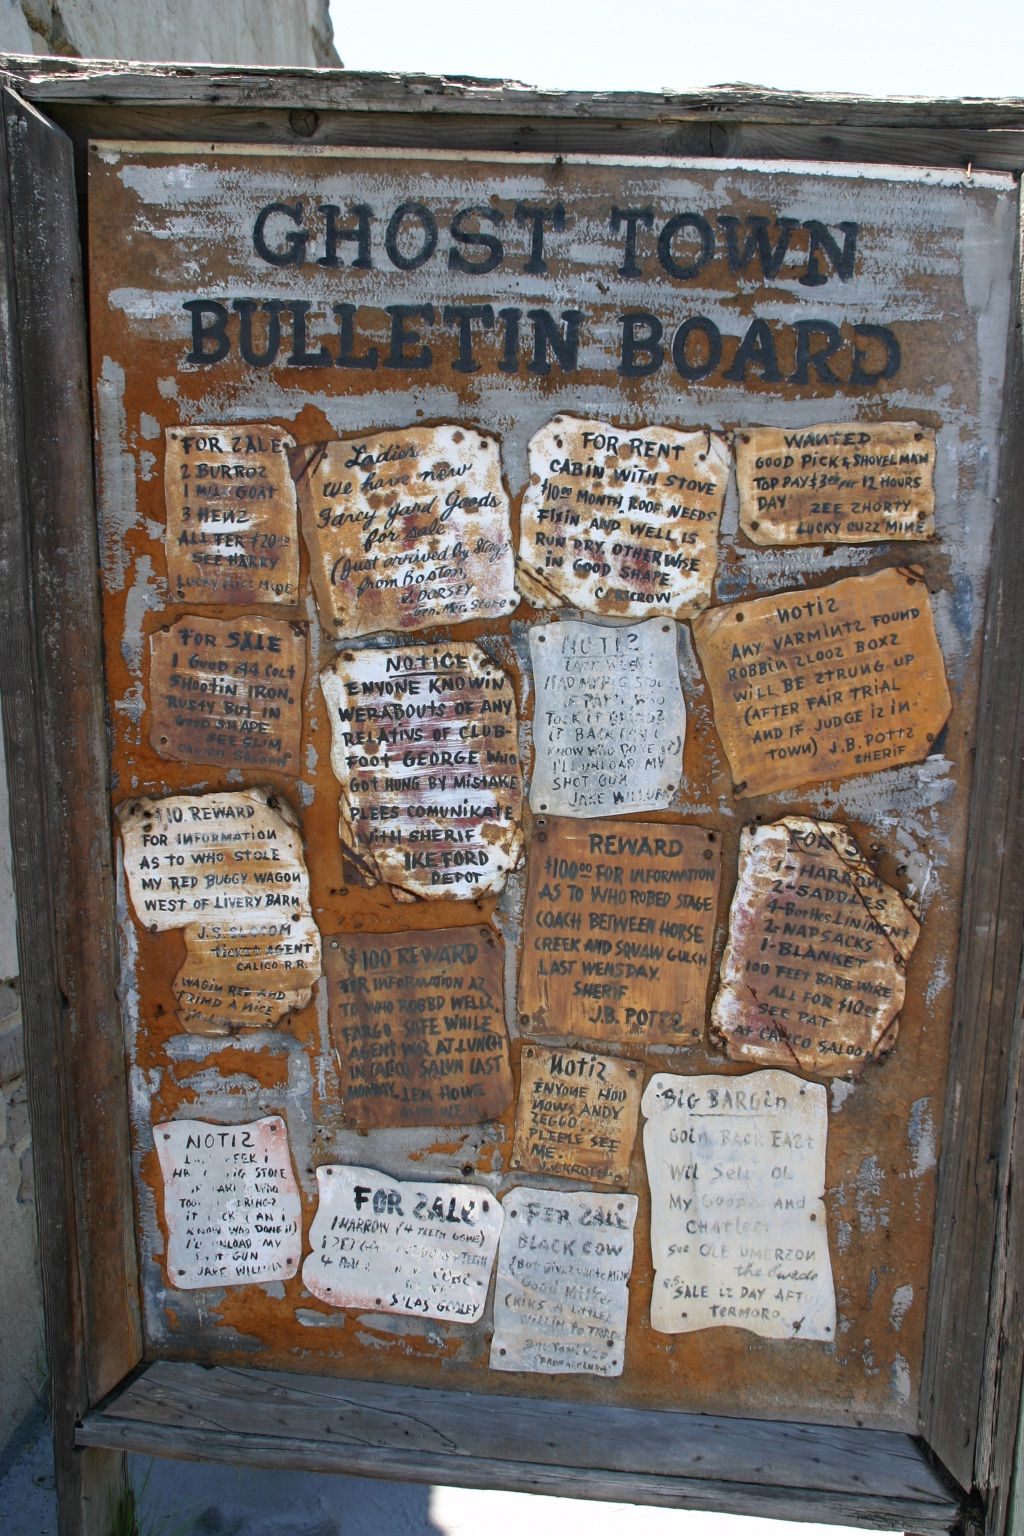 GHOST TOWN
BULLETIN BOARD
FOR ZALE
2 BURROZ
1 GOAT
3 HENZ
ALL FER $20.00
SEE HARRY
Ladies
We have now
Fancy yard Goods
for sale
(Just arrived by Stage
from Boston)
J. DORSEY
Gen. Mer. Store
FOR RENT
CABIN WITH STOVE
$10.00 MONTH, ROOF NEEDS
FIXIN AND WELL IS
RUN DRY. OTHERWISE
IN GOOD SHAPE.
WANTED
GOOD PICK & SHOVEL MAN
TOP PAY $3.00 PER 12 HOURS
DAY ZEE ZHORTY
LUCKY CUZZ MINE
FOR SALE
1 GUUD 44 COLT
SHOOTIN IRON,
RUSTY BUT IN
GOOD SHAPE
SEE SLIM
SALOON
NOTICE
ENYONE KNOWIN
WERABOUTS OF ANY
RELATIVS OF CLUB-
FOOT GEORGE WHO
GOT HUNG BY MISTAKE
PLEES COMUNIKATE
WITH SHERIF
IKE FORD
DEPOT
NOTIZ
LAST WEEK I
HAD MY PIG STOLE
IF PARTY WHO
TOOK IT BRINGZ
IT BACK (AN I
KNOW WHO DONE IT)
I'LL UNLOAD MY
SHOT GUN
JAKE WILLUM
NOTIZ
ANY VARMINTZ FOUND
ROBBIN ZLOOZ BOXZ
WILL BE ZTRUNG UP
(AFTER FAIR TRIAL
AND IF JUDGE IZ IN
TOWN) J.B. POTTZ
ZHERIF
$10. REWARD
FOR INFORMATION
AS TO WHO STOLE
MY RED BUGGY WAGON
WEST OF LIVERY BARN
J.S. SLOCOM
TICKIT AGENT
CALICO R.R.
WAGIN RED AND
TRIMD A NICE
$100 REWARD
FER INFORMATION AZ
TO WHO ROBBD WELLZ
FARGO SAFE WHILE
AGENT WAZ AT LUNCH
IN CALICO SALUN LAST
MONDAY. LEM HOWE
REWARD
$100.00 FOR INFORMATION
AS TO WHO ROBED STAGE
COACH BETWEEN HORSE
CREEK AND SQUAW GULCH
LAST WENSDAY.
SHERIF
J.B. POTTS
FOR
1-HARROW,
2-SADDLES
4-Bottles LINIMENT
2-NAPSACKS
1-BLANKET
100 FEET BARB WIRE
ALL FOR $10.00
SEE PAT
AT CALICO SALOON
NOTIZ
ENYONE HOO
NOWS ANDY
ZEGGO...
PLEEPLE SEE
ME.
BIG BARGIN
GOIN BACK EAST
WIL SELL OL
MY GOODS AND
CHATLEZ.
SEE OLE UMERZON
the Swede
P.S. SALE IZ DAY AFT
TERMORO.
NOTIZ
LAST WEEK I
HAD MY PIG STOLE
IF PARTY WHO
TOOK IT BRINGZ
IT BACK (AN I
KNOW WHO DONE IT)
I'LL UNLOAD MY
SHOT GUN
JAKE WILLUM
FOR ZALE
1 HARROW (4 TEETH GONE)
TEETH
4
SILAS GOOLEY
FER ZALE
BLACK COW
(BUT GIVZ WHITE MILK
GOOD MILKER
(KIKS A LITTLE)
WILLIN TO TRADE